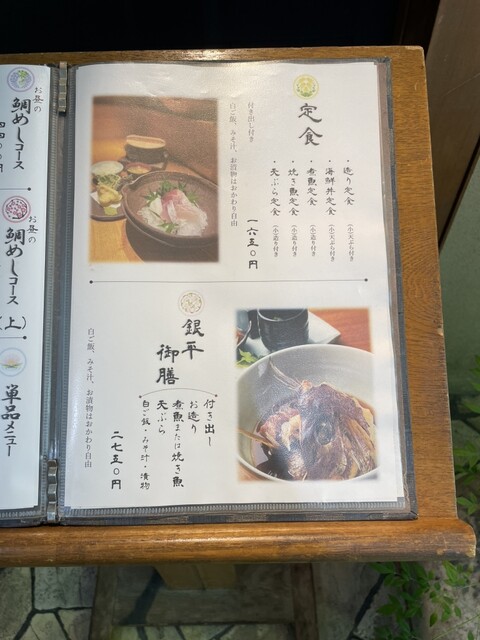 定食
・造り定食 （小）天ぷら付き
・海鮮丼定食 （小）天ぷら付き
・煮魚定食 （小）造り付き
・焼き魚定食 （小）造り付き
・天ぷら定食 （小）造り付き
一六五〇円
付き出し付き
白ご飯、みそ汁、お漬物はおかわり自由
銀平
御膳
付き出し
お造り
煮魚または焼き魚
天ぷら
白ご飯・みそ汁・漬物
二七五〇円
白ご飯、みそ汁、お漬物はおかわり自由
お昼の
鯛めしコース
お昼の
鯛めしコース
（上）
単品メニュー